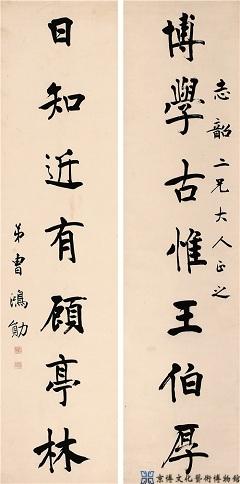 志韶二兄大人正之
博學古惟王伯厚
日知近有顧亭林
弟曹鴻勛
京博文化藝術博物館